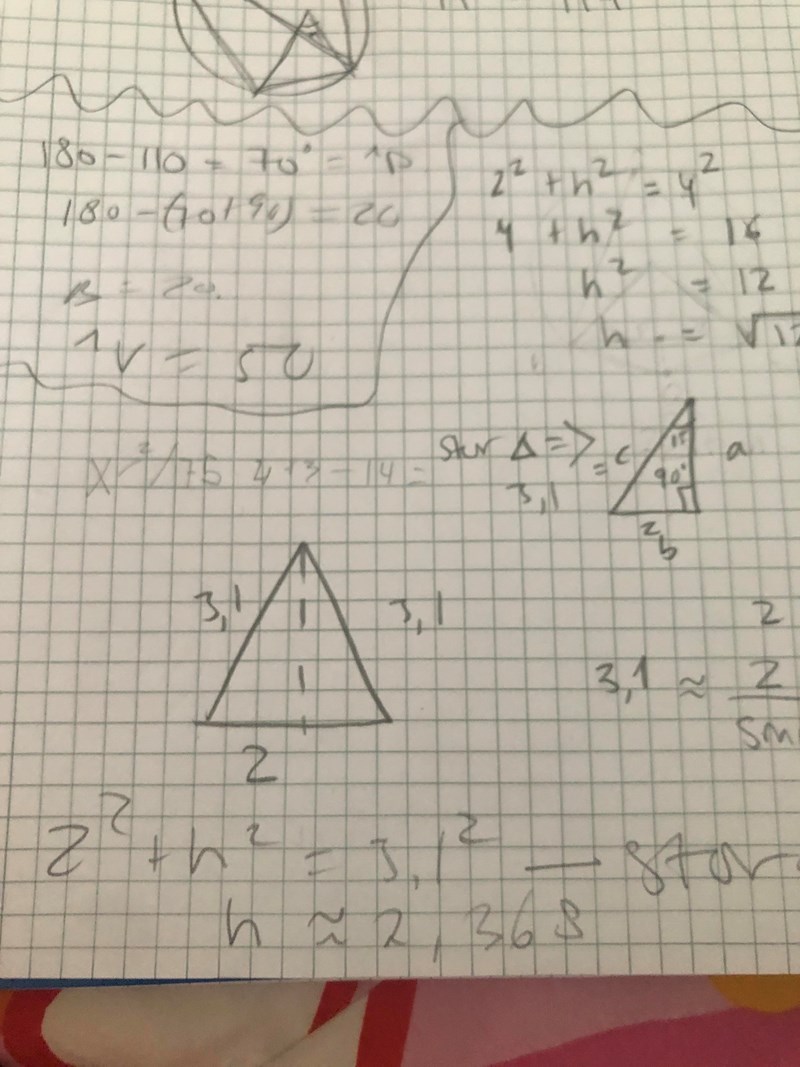 180 - 110 = 70° =
180 - (70+90) = 20
B = 20.
1v = 50
2² + h² = 4²
4 + h² = 16
h² = 12
h = √12
x²/75 4+3-14=
stor Δ =>
3,1
= c
a
90°
2
b
3,1
3,1
2
2
3,1 ≈ 2
sin
2² + h² = 3,1² — stor
h ≈ 2,368